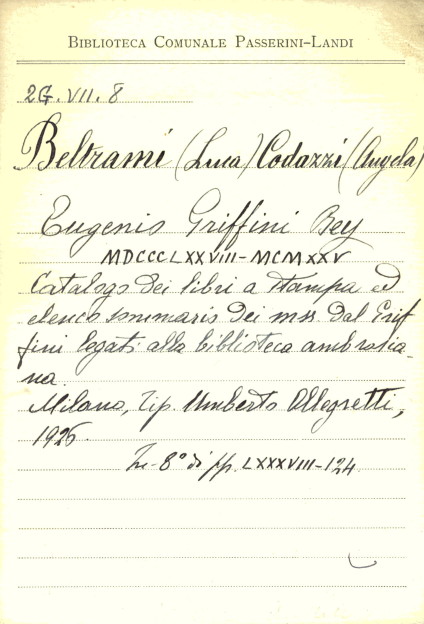 BIBLIOTECA COMUNALE PASSERINI-LANDI
2G.VII.8
Beltrami (Luca) Codazzi (Angela)
Eugenio Griffini Bey
MDCCCLXXVIII-MCMXXV
Catalogo dei libri a stampa ed
elenco sommario dei mss. dal Grif
fini legati alla biblioteca ambrosia-
na.
Milano, Tip. Umberto Allegretti,
1926.
In-8° di pp. LXXXVIII-124